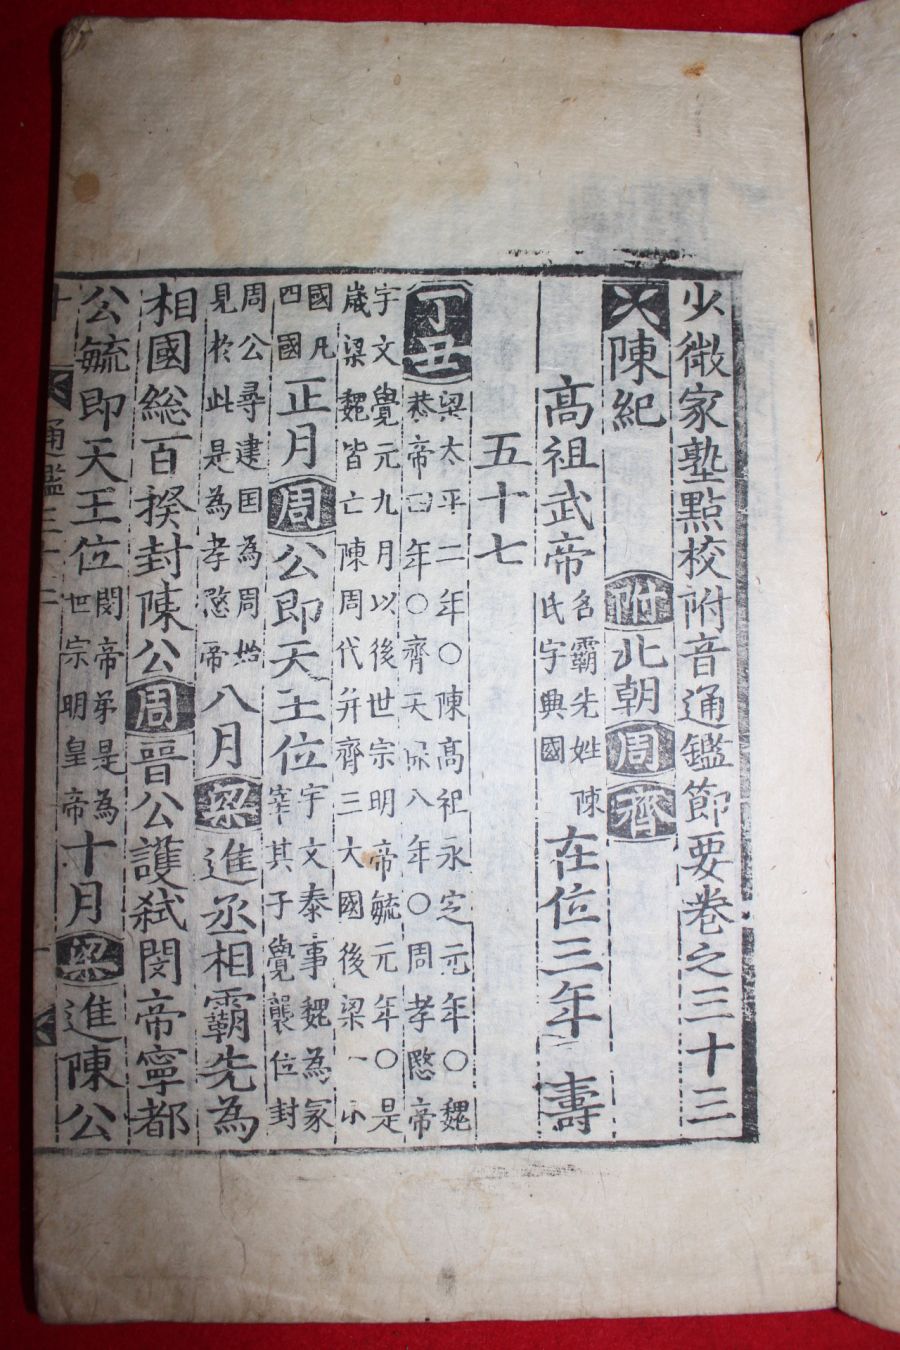 少微家塾點校附音通鑑節要卷之三十三
陳紀 附北朝周齊
高祖武帝名霸先姓陳氏字興國在位三年 壽
五十七
丁丑梁太平二年○陳高祖永定元年○魏恭帝四年○齊天保八年○周孝愍帝
宇文覺元九月以後世宗明帝毓元年○是歲梁魏皆亡陳周代并齊三大國後梁一小
國凡四國正月周公即天王位宇文泰事魏為冢宰其子覺襲位封
周公尋建国為周始見於此是為孝愍帝八月梁進丞相霸先為
相國総百揆封陳公周晉公護弑閔帝寧都
公毓即天王位閔帝弟是為世宗明皇帝十月梁進陳公
通鑑三十